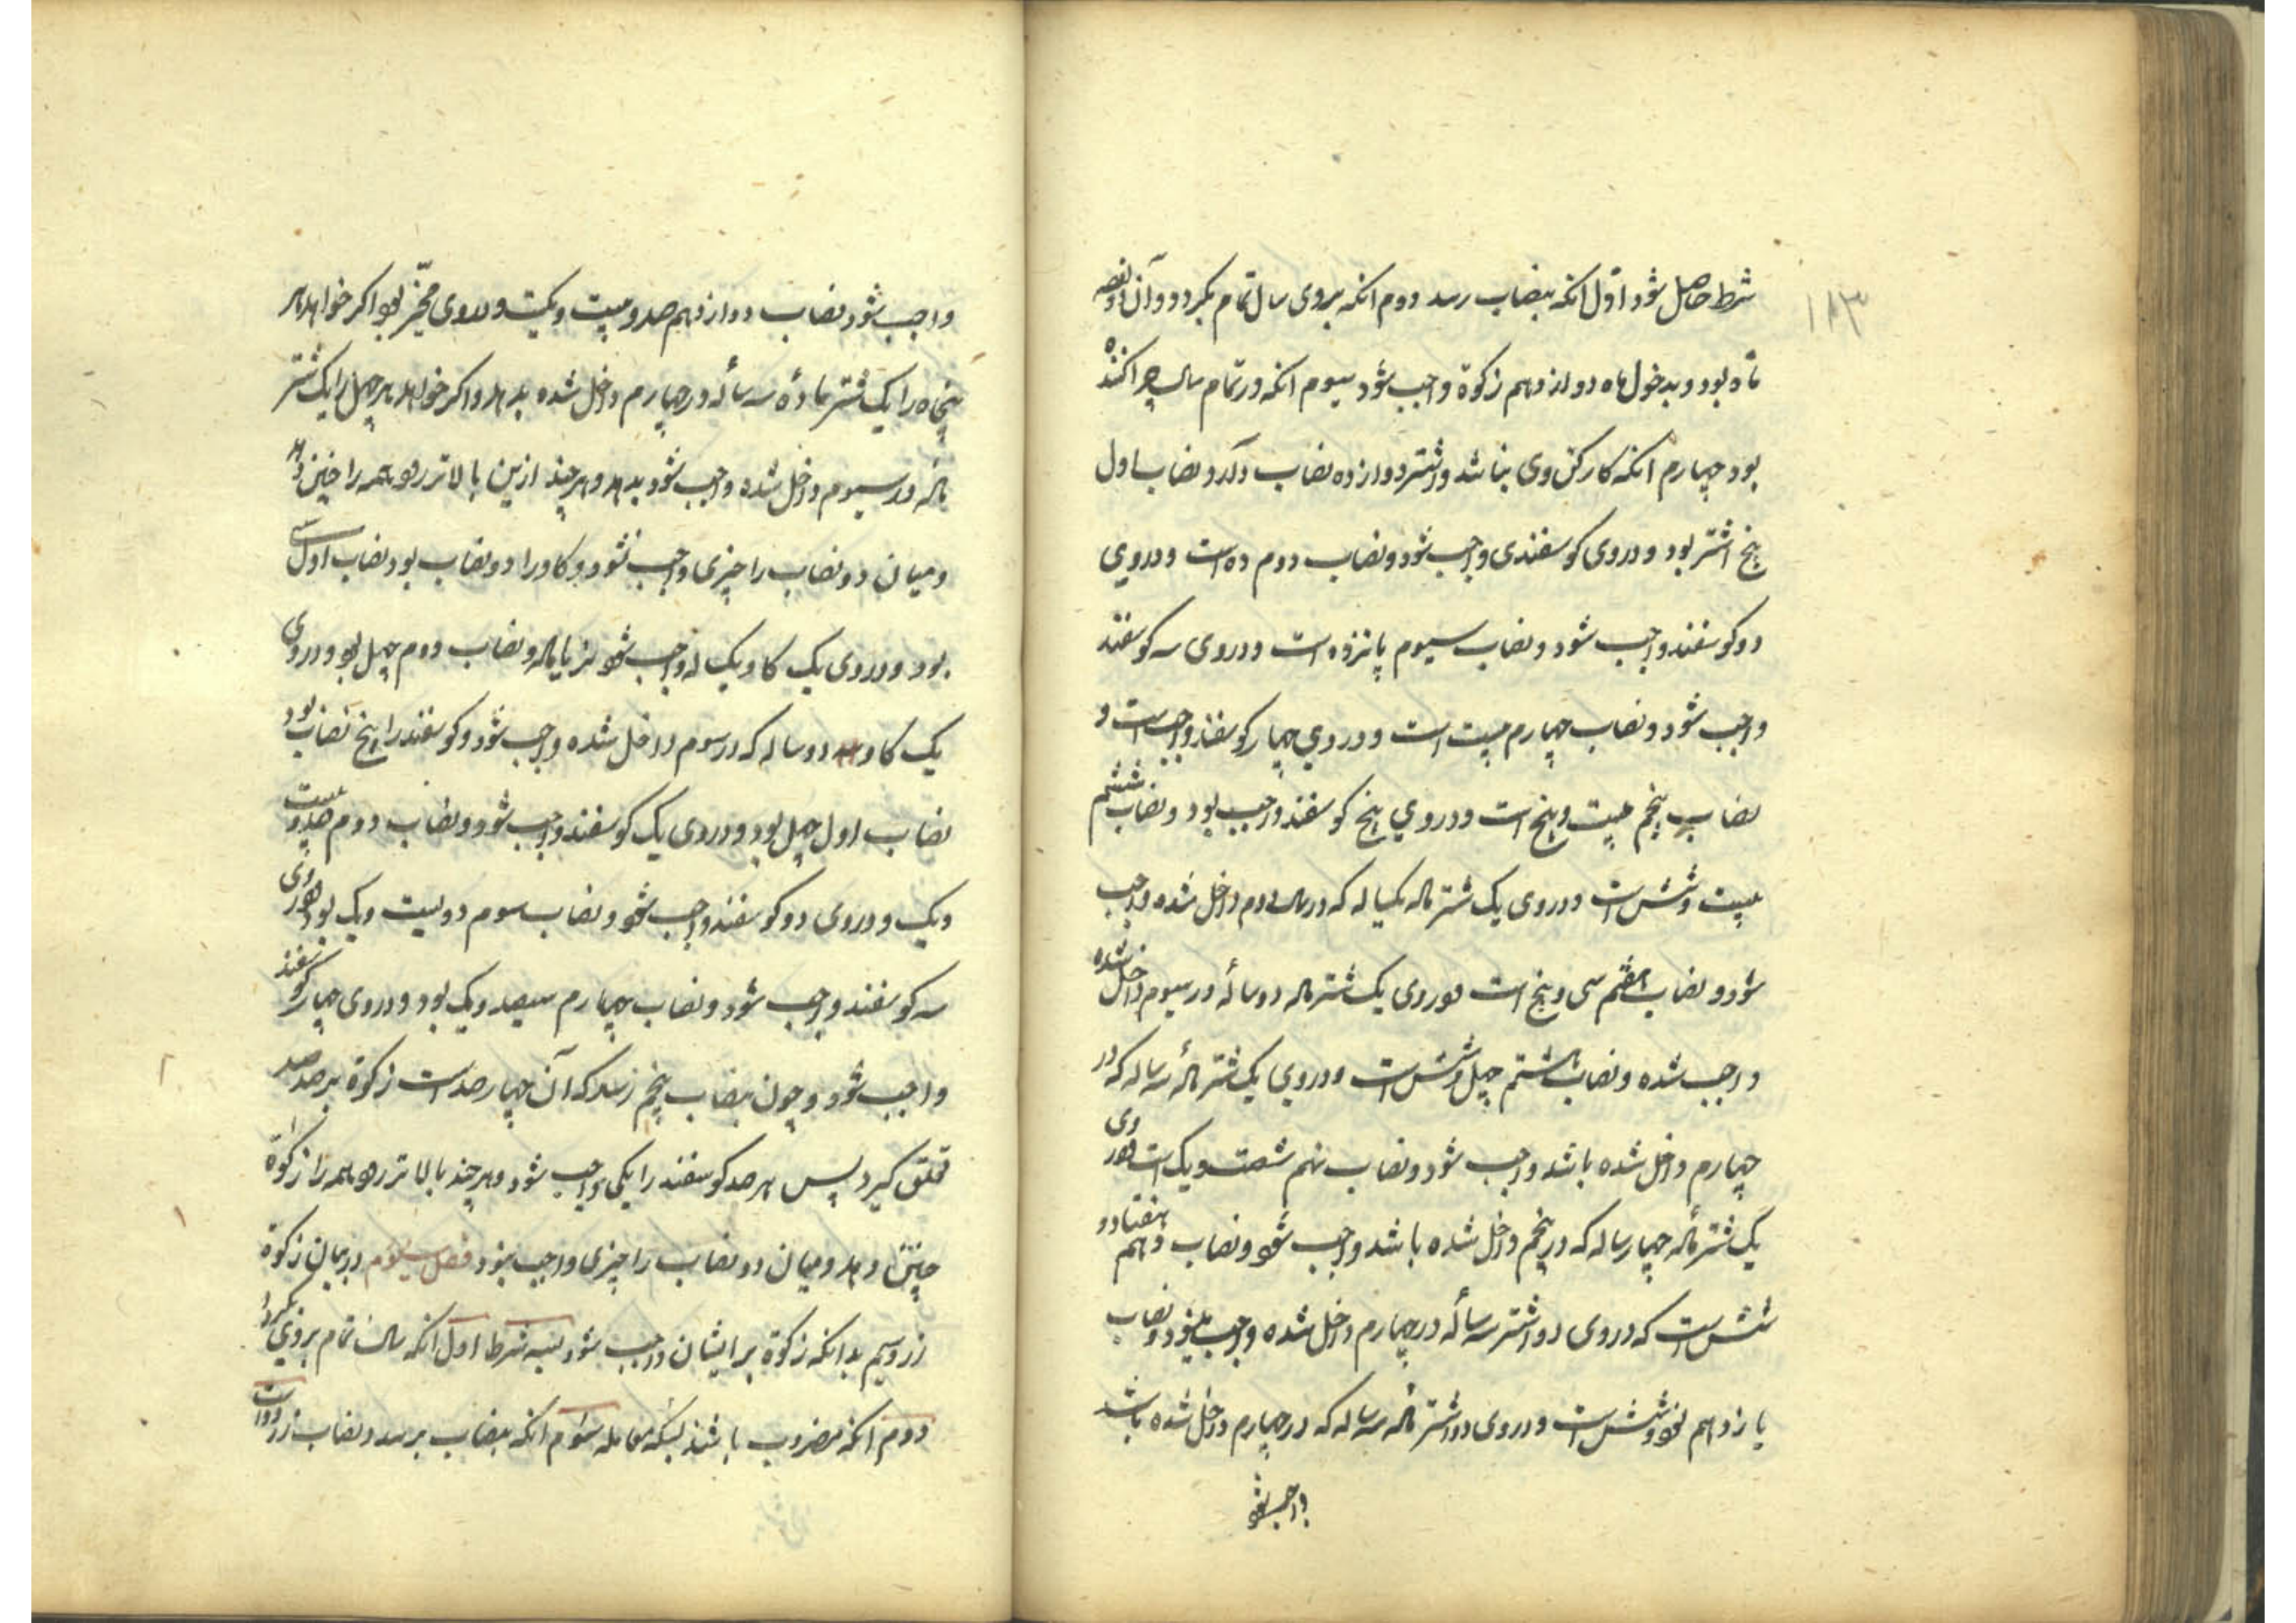 ۱۸۳
شرط حاصل شود اول انکه بنصاب رسد دوم انکه بروی سال تمام بکردد و آن
ماه بود و بدخول ماه دوازدهم زکوة واجب شود سیوم انکه در تمام سال چرا کننده
بود چهارم انکه کارکن وی نباشد و اشتر دوازده نصاب دارد نصاب اول
پنج اشتر بود و در وی کوسفندی واجب شود و نصاب دوم ده است و در وی
دو کوسفند واجب شود و نصاب سیوم پانزده است و در وی سه کوسفند
واجب شود و نصاب چهارم بیست است و در وی چهار کوسفند واجب است و
نصاب پنجم بیست و پنج است و در وی پنج کوسفند واجب بود و نصاب ششم
بیست و شش است و در وی یک شتر ماله یکساله که در سال دوم داخل شده واجب
شود و نصاب هفتم سی و پنج است و در وی یک شتر ماله دوساله در سیوم داخل شده
واجب شده و نصاب هشتم چهل و شش است و در وی یک شتر ماله سه ساله که در
چهارم داخل شده باشد واجب شود و نصاب نهم شصت و یک است و در وی
یک شتر ماله چهارساله که در پنجم داخل شده باشد واجب شود و نصاب دهم هفتاد و
شش است که در وی دو اشتر سه ساله در چهارم داخل شده واجب میشود و نصاب
یازدهم نود و شش است و در وی دو اشتر ماله سه ساله که در چهارم داخل شده باشد
واجب شود
واجب شود نصاب دوازدهم صد و بیست و یکست و در وی مخیر بود اکر خواهد هر
پنجاه را یک شتر ماده سه ساله در چهارم داخل شده بدهد و اکر خواهد هر چهل را یک شتر
ماله در سیوم داخل شده واجب شود بدهد و هر چند ازین بالاتر رود همه را چنین دهد
و میان دو نصاب را چیزی واجب نشود و کاو را دو نصاب بود نصاب اول سی
بود و در وی یک کاو یک له واجب شود نر یا ماله و نصاب دوم چهل بود و در وی
یک کاو دوساله که در سوم داخل شده واجب شود و کوسفند را پنج نصاب بود
نصاب اول چهل بود و در وی یک کوسفند واجب شود و نصاب دوم صد و بیست
و یک و در وی دو کوسفند واجب شود و نصاب سوم دویست و یک بود و در وی
سه کوسفند واجب شود و نصاب چهارم سیصد و یک بود و در وی چهار کوسفند
واجب شود و چون بنصاب پنجم رسد که آن چهارصد است زکوة بر صد صد
تعلق کیرد پس هر صد کوسفند را یکی واجب شود و هر چند بالاتر رود همه را زکوة
چنین دهد و میان دو نصاب را چیزی واجب نبود فصل سیوم در بیان زکوة
زر و سیم بدانکه زکوة بر ایشان واجب شود بسه شرط اول انکه سال تمام بر وی بکردد
دوم انکه مضروب باشند بسکه معامله سوم انکه بنصاب برسد و نصاب زر دو است